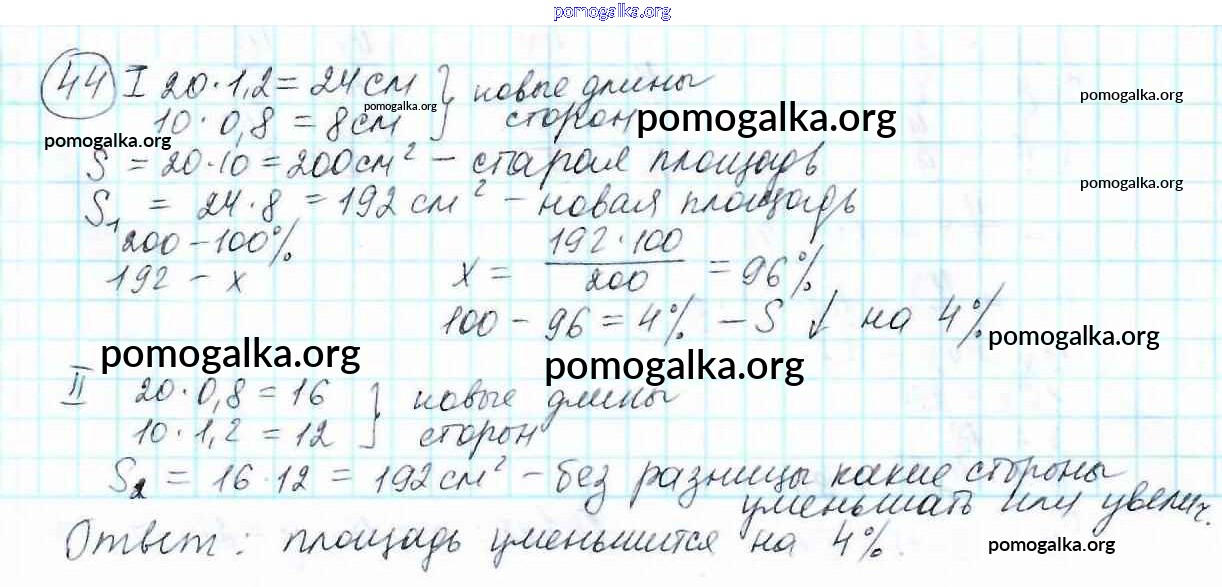 pomogalka.org
44 I 20·1,2 = 24 см } новые длины
pomogalka.org
pomogalka.org
10·0,8 = 8 см } сторон
pomogalka.org
pomogalka.org
S = 20·10 = 200 см² – старая площадь
pomogalka.org
S₁ = 24·8 = 192 см² – новая площадь
200 – 100%
192 – x x = 192·100/200 = 96%
100 – 96 = 4% – S ↓ на 4%
pomogalka.org
pomogalka.org
pomogalka.org
II 20·0,8 = 16 } новые длины
10·1,2 = 12 } сторон
S₂ = 16·12 = 192 см² – без разницы какие стороны
уменьшать или увелич.
Ответ: площадь уменьшится на 4%.
pomogalka.org